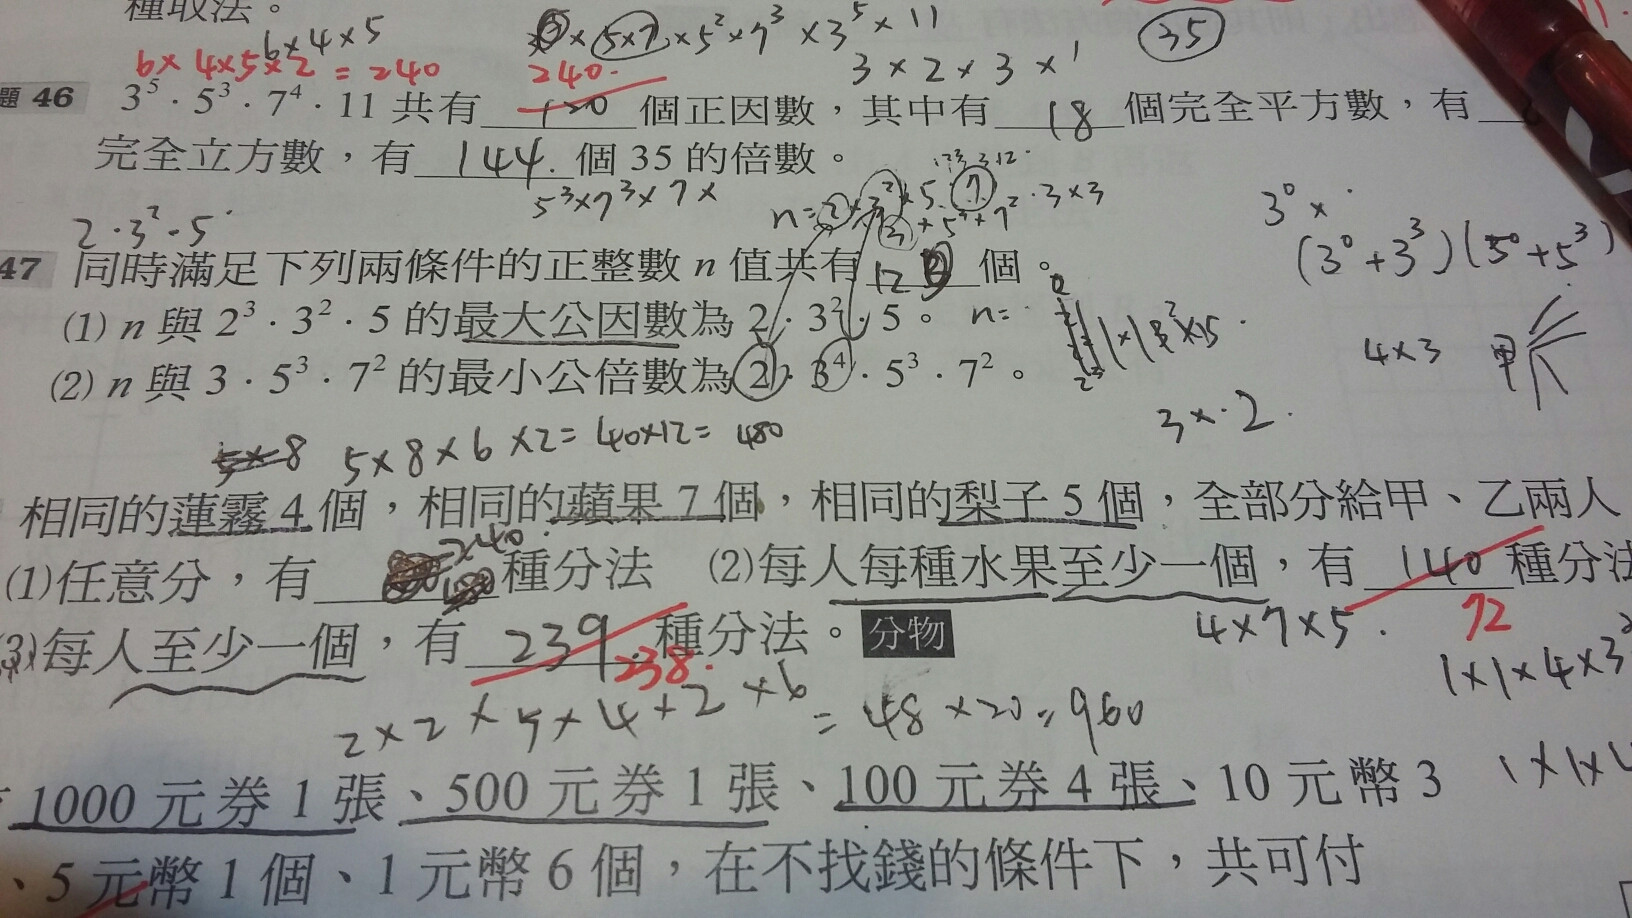 種取法。
6×4×5
6×4×5×2=240
×5×7×5²×7³×3⁵×11
3×2×3×1
35
240.
題 46 3⁵·5³·7⁴·11 共有 120 個正因數，其中有 18 個完全平方數，有
完全立方數，有 144. 個 35 的倍數。
5³×7³×7×
2·3²·5
47 同時滿足下列兩條件的正整數 n 值共有 12 個。
(3⁰+3³)(5⁰+5³)
(1) n 與 2³·3²·5 的最大公因數為 2·3²·5。 n=
4×3 甲
(2) n 與 3·5³·7² 的最小公倍數為 2·3⁴·5³·7²。
3×·2.
5×8 5×8×6×2=40×12=480
相同的蓮霧 4 個，相同的蘋果 7 個，相同的梨子 5 個，全部分給甲、乙兩人
(1)任意分，有 240. 種分法 (2)每人每種水果至少一個，有 140 種分法
4×7×5. 72
(3)每人至少一個，有 239. 種分法。 分物
238.
1×1×4×3
2×2×5×4×2×6=48×20=960
1000 元券 1 張、500 元券 1 張、100 元券 4 張、10 元幣 3
1×1×
、5 元幣 1 個、1 元幣 6 個，在不找錢的條件下，共可付